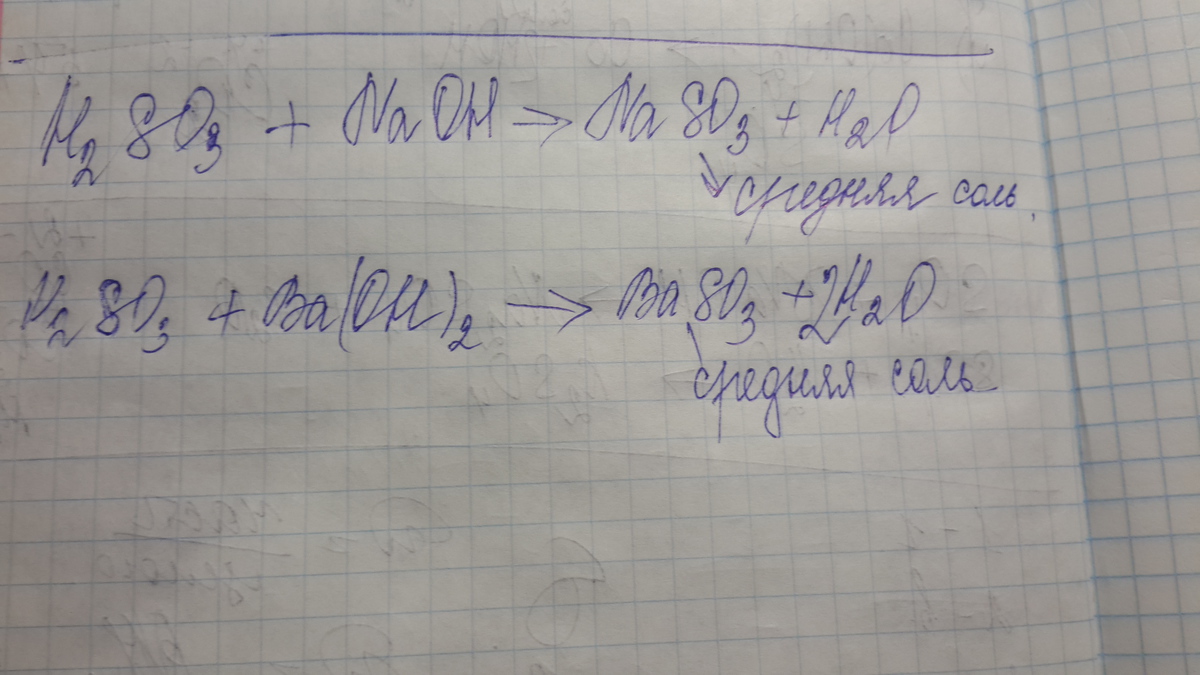 H₂SO₃ + NaOH → NaSO₃ + H₂O
средняя соль.
H₂SO₃ + Ba(OH)₂ → BaSO₃ + 2H₂O
средняя соль